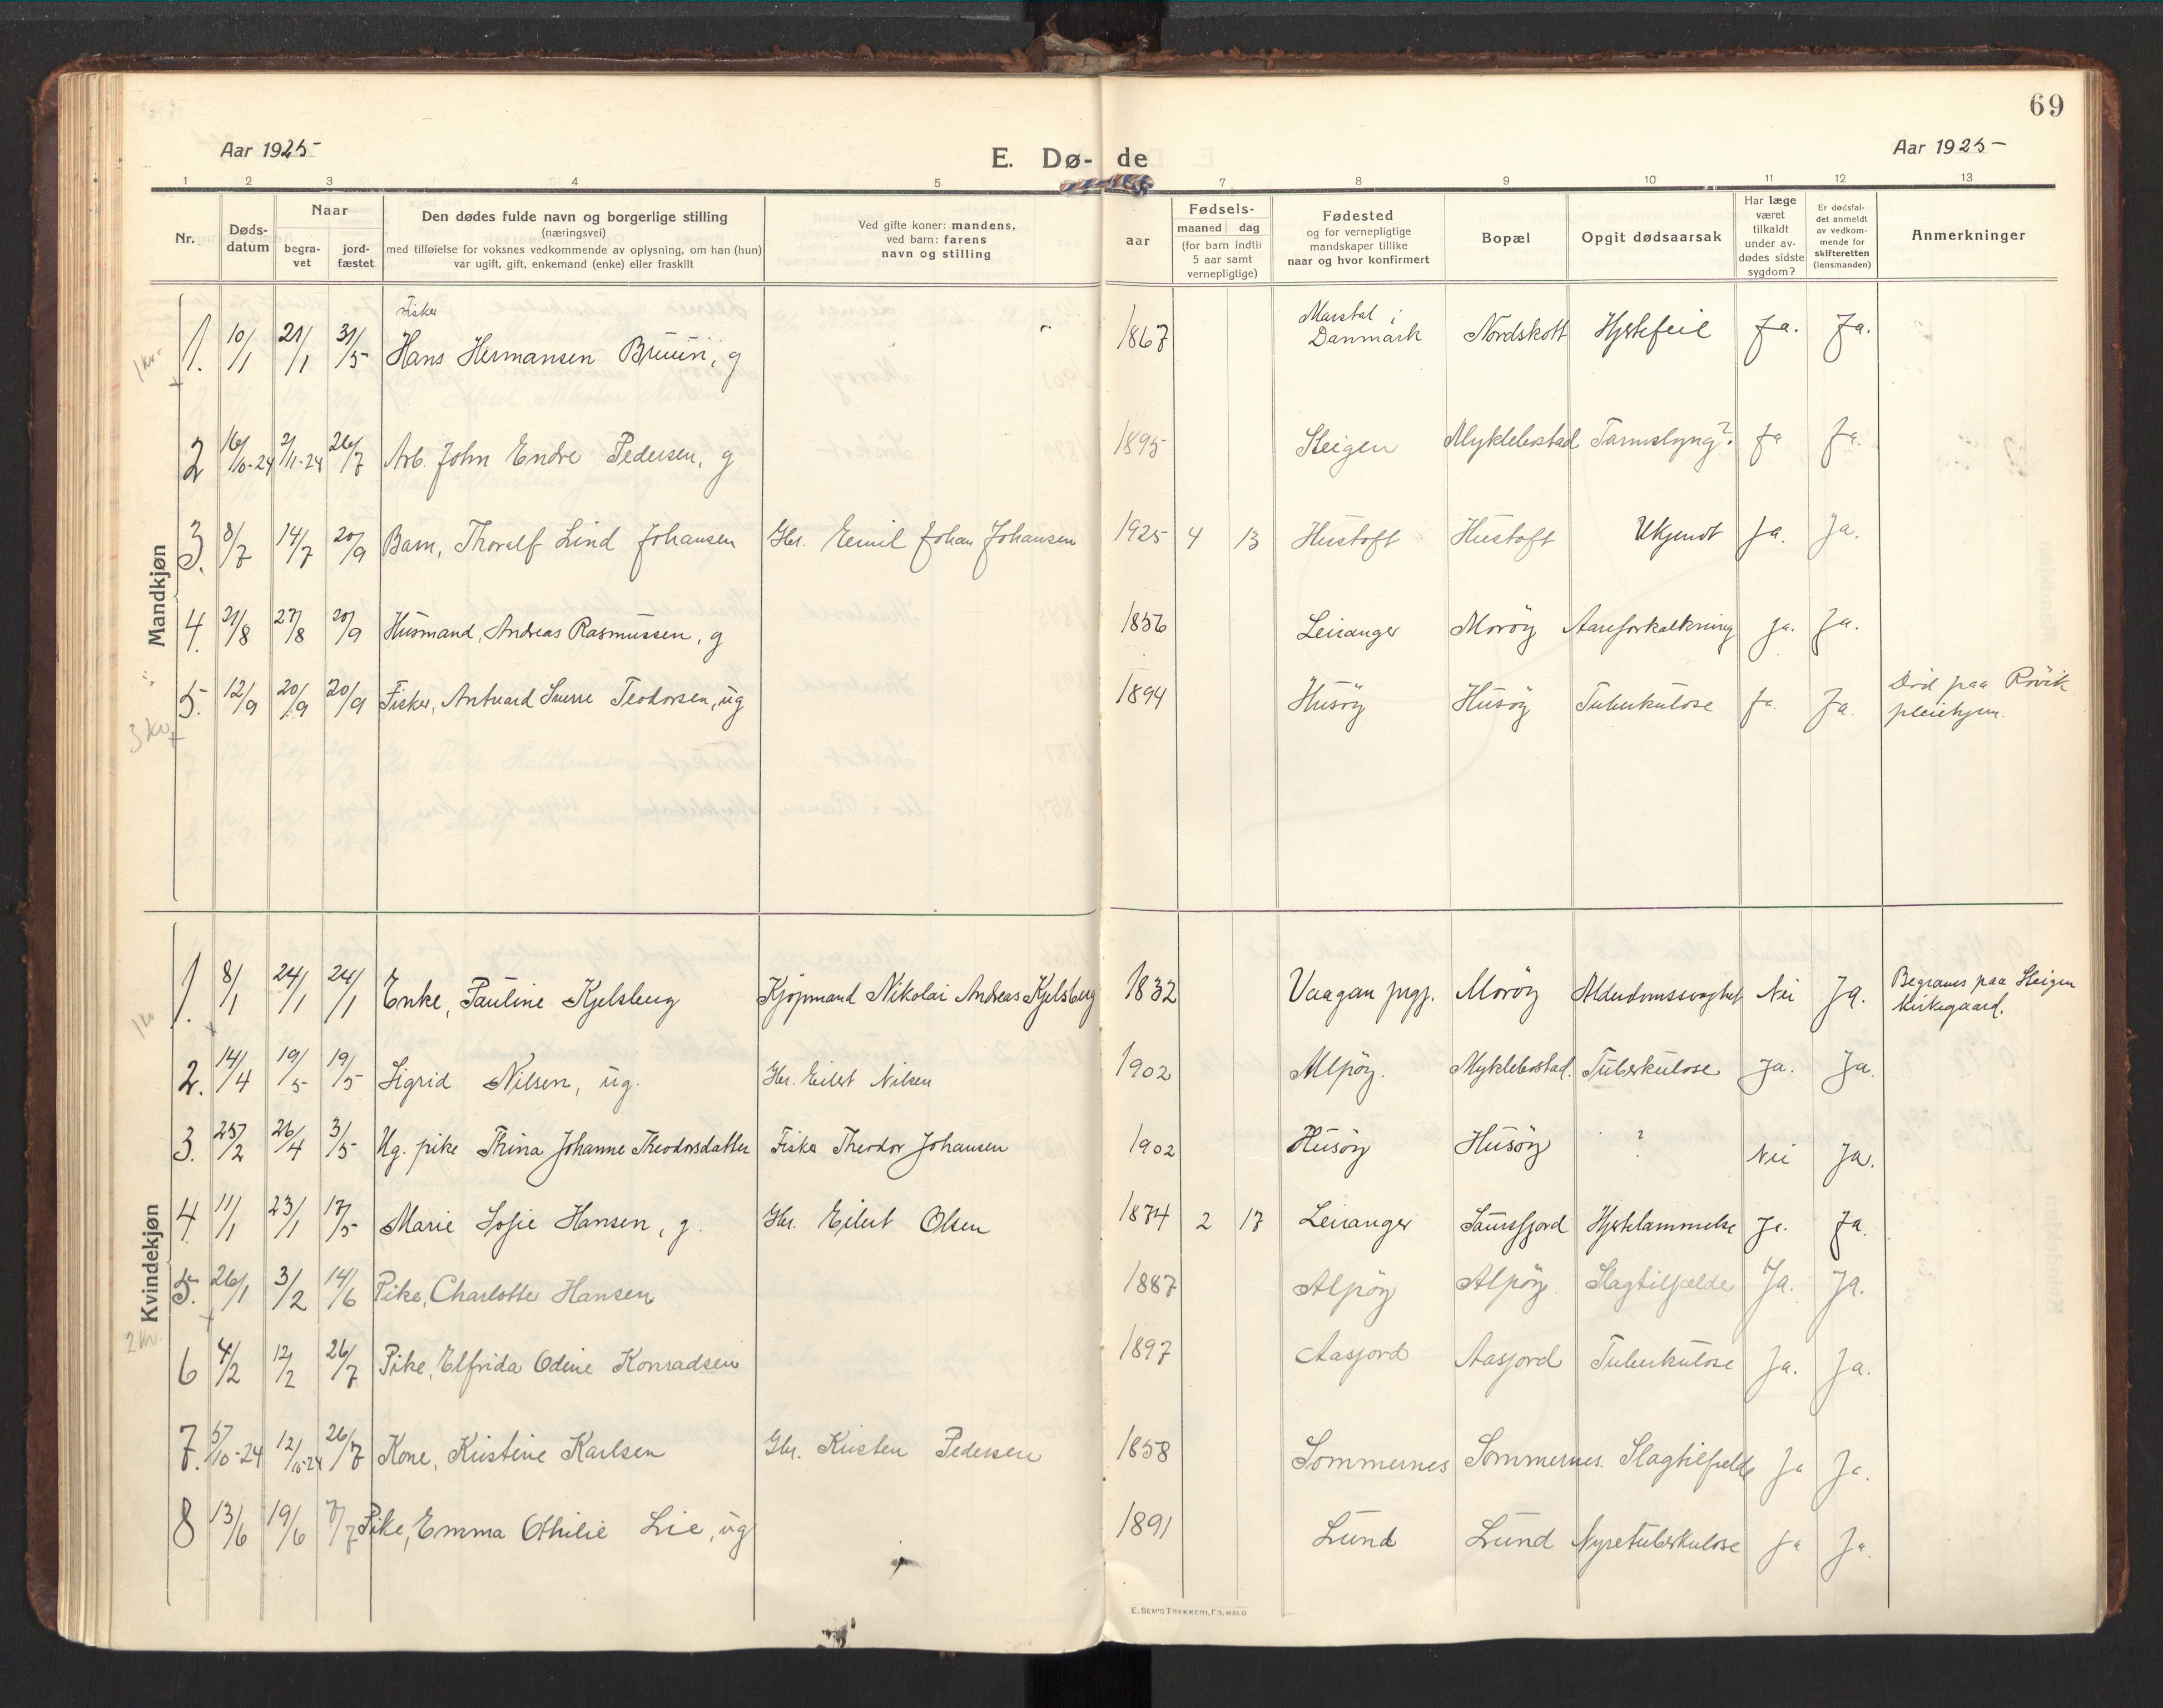 69
Aar 1925
E. Dø- de
Aar 1925
1 2 3 4 5 7 8 9 10 11 12 13
Nr.
Døds-
datum
Naar
begra-
vet
jord-
fæstet
Den dødes fulde navn og borgerlige stilling
(næringsvei)
med tilføielse for voksnes vedkommende av oplysning, om han (hun)
var ugift, gift, enkemand (enke) eller fraskilt
Ved gifte koner: mandens,
ved barn: farens
navn og stilling
aar
Fødsels-
maaned dag
(for barn indtil
5 aar samt
vernepligtige)
Fødested
og for vernepligtige
mandskaper tillike
naar og hvor konfirmert
Bopæl
Opgit dødsaarsak
Har læge
været
tilkaldt
under av-
dødes sidste
sygdom?
Er dødsfal-
det anmeldt
av vedkom-
mende for
skifteretten
(lensmanden)
Anmerkninger
Mandkjøn
1 kr.
1. 10/1 21/1 31/5 Fisker Hans Hermansen Bruun, g 1867 Marstal i Danmark Nordskott Hjertefeil Ja. Ja.
2 16/10-24 2/11-24 26/7 Arb. John Endre Pedersen, g 1895 Steigen Myklebostad Tarmslyng? Ja Ja.
3. 8/7 14/7 20/9 Barn, Thoralf Lind Johansen Gbr. Emil Johan Johansen 1925 4 13 Hustoft Hustoft Ukjendt Ja. Ja.
4. 21/8 27/8 20/9 Husmand, Andreas Rasmussen, g 1856 Leiranger Morøy Aareforkalkning Ja. Ja.
5. 12/9 20/9 20/9 Fisker, Antuard Sverre Teodorsen, ug 1894 Husøy Husøy Tuberkulose Ja. Ja. Död paa Rövik pleiehjem.
3 kr.
Kvindekjøn
1 kr
1. 8/1 24/1 24/1 Enke, Pauline Kjelsberg Kjøpmand Nikolai Andreas Kjelsberg 1832 Vaagan prgj. Morøy Alderdomssvaghet Nei Ja. Begraves paa Steigen kirkegaard.
2. 14/4 19/5 19/5 Sigrid Nilsen, ug. Gbr. Eilert Nilsen 1902 Alpøy. Myklebostad. Tuberkulose Ja. Ja.
3. 25/2 26/4 3/5 Ug. pike Thina Johanne Theodorsdatter Fisker Theodor Johansen 1902 Husøy Husøy ? Nei Ja.
4. 11/1 23/1 17/5 Marie Sofie Hansen, g. Gbr. Eilert Olsen 1874 2 17 Leiranger Saursfjord Hjertelammelse Ja. Ja.
5. 26/1 3/2 14/6 Pike, Charlotte Hansen 1887 Alpøy Alpøy Slagtilfælde Ja. Ja.
2 kr.
6 4/2 12/2 26/7 Pike, Elfrida Odine Konradsen 1897 Aasjord Aasjord Tuberkulose Ja. Ja.
7. 5/10-24 12/10-24 26/7 Kone, Kristine Karlsen Gbr. Kristen Pedersen 1858 Sommernes Sommernes. Slagtilfælde Ja Ja.
8 13/6 19/6 7/7 Pike, Emma Othilie Lie, ug 1891 Lund Lund Nyretuberkulose Ja Ja.
E. SEM'S TRYKKERI, FR.HALD